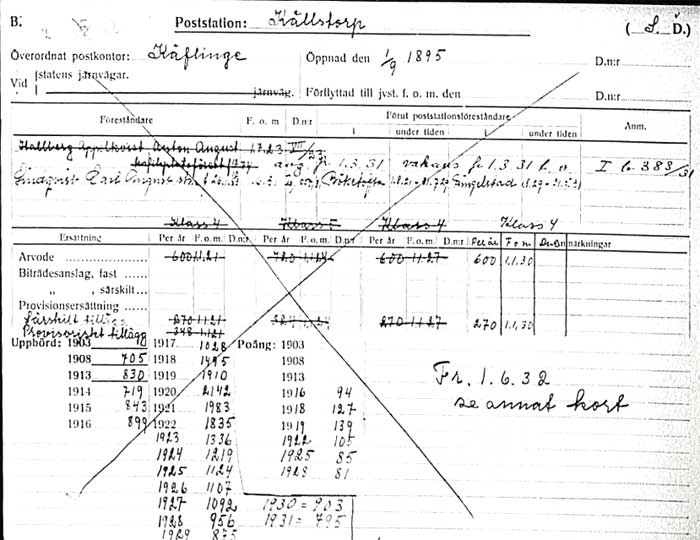 B. Poststation: Källstorp (S. D.)
Överordnat postkontor: Käflinge Öppnad den 1/9 1895 D.n:r
Vid {statens järnvägar.
järnväg. Förflyttad till jvst. fr. o. m. den D.n:r
Föreståndare F. o. m D.n:r Förut poststationsföreståndare Anm.
i under tiden i under tiden
Anton August 1.7.23
1.3.31 vakans fr. 1.3.31 I b. 383/31
Lindqvist Karl August
Klass 4 Klass 5 Klass 4 Klass 4
Ersättning Per år F. o. m. D.n:r Per år F. o. m. D.n:r Per år F. o. m. D.n:r Per år F o m D.n:r Anmärkningar
Arvode 600 1.1.21 720 1.1.24 600 1.1.27 600 1.1.30
Biträdesanslag, fast
„ , särskilt
Provisionsersättning
Särskilt tillägg 270 1.1.21 324 1.1.24 270 1.1.27 270 1.1.30
Provisoriskt tillägg 348 1.1.21
Uppbörd: 1903 1917 1028 Poäng: 1903
1908 705 1918 1495 1908
1913 830 1919 1910 1913
1914 719 1920 2142 1916 94
1915 843 1921 1983 1918 127
1916 899 1922 1835 1919 139
1923 1336 1922 105
1924 1219 1925 85
1925 1124 1928 81
1926 1107
1927 1092 1930 = 903
1928 956 1931 = 795
1929 875
Fr. 1.6.32
se annat kort